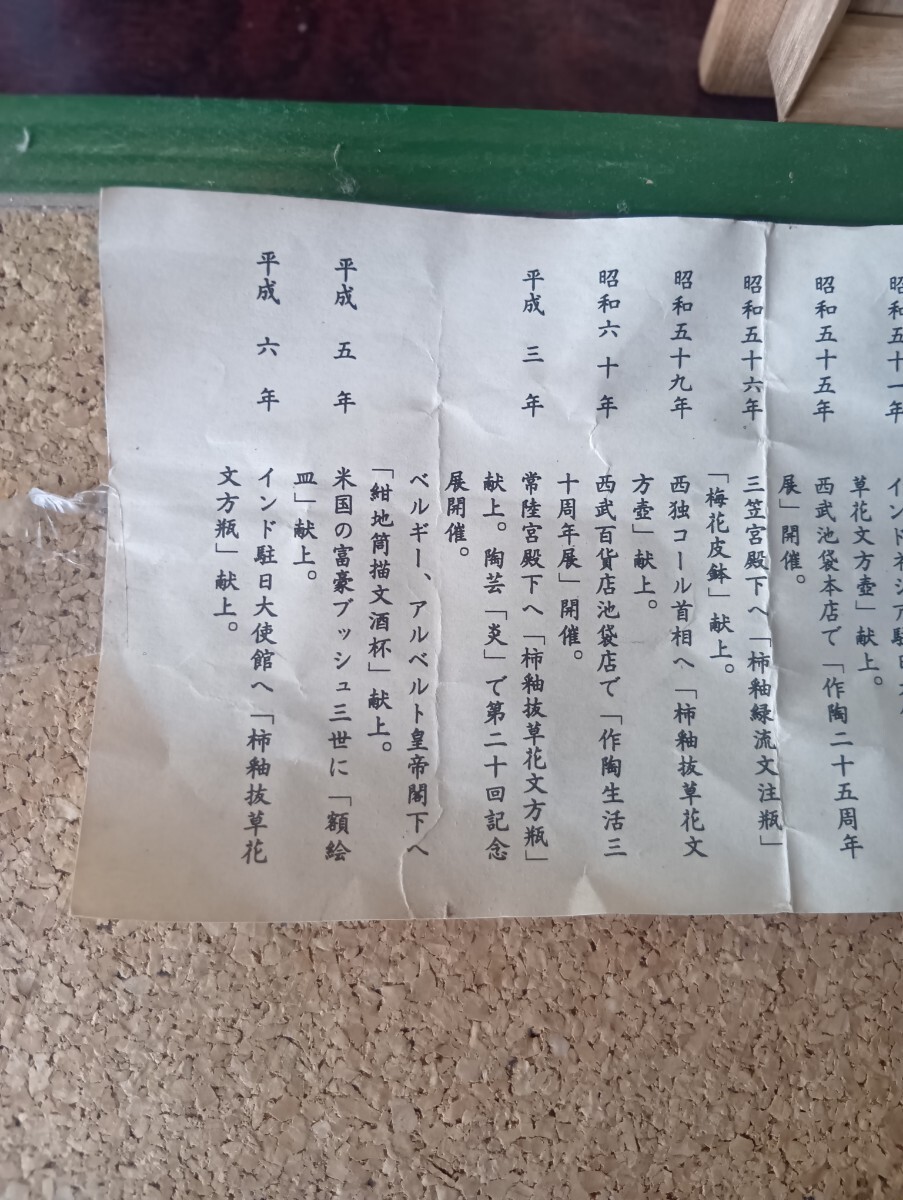 昭和五十一年 インドネシア駐日大
草花文方壺」献上。
昭和五十五年 西武池袋本店で「作陶二十五周年
展」開催。
昭和五十六年 三笠宮殿下へ「柿釉緑流文注瓶」
「梅花皮鉢」献上。
昭和五十九年 西独コール首相へ「柿釉抜草花文
方壺」献上。
昭和六十年 西武百貨店池袋店で「作陶生活三
十周年展」開催。
平成三年 常陸宮殿下へ「柿釉抜草花文方瓶」
献上。陶芸「炎」で第二十回記念
展開催。
ベルギー、アルベルト皇帝閣下へ
「紺地筒描文酒杯」献上。
平成五年 米国の富豪ブッシュ三世に「額絵
皿」献上。
平成六年 インド駐日大使館へ「柿釉抜草花
文方瓶」献上。